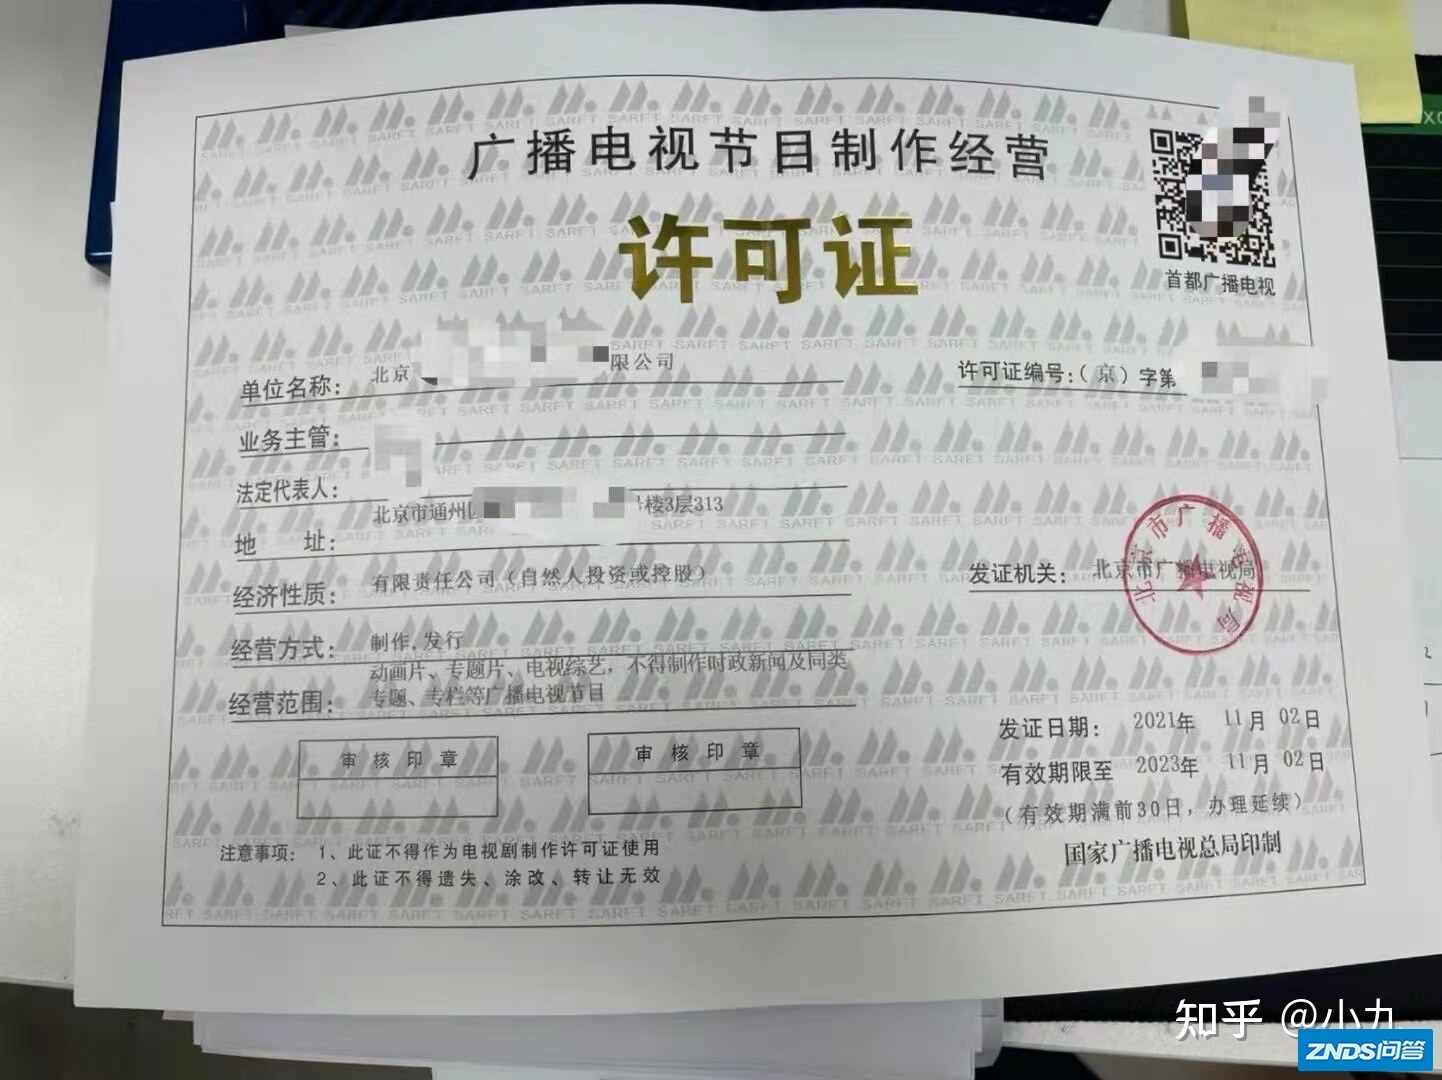 广播电视节目制作经营
许可证
首都广播电视
单位名称：北京 限公司
许可证编号：（京）字第
业务主管：
法定代表人：
地 址：北京市通州 楼3层313
经济性质：有限责任公司（自然人投资或控股）
发证机关：北京市广播电视局
北京市广播电视局
经营方式：制作,发行
经营范围：动画片、专题片、电视综艺，不得制作时政新闻及同类
专题、专栏等广播电视节目
审核印章
审核印章
发证日期：2021年 11月 02日
有效期限至 2023年 11月 02日
（有效期满前30日，办理延续）
国家广播电视总局印制
注意事项：1、此证不得作为电视剧制作许可证使用
2、此证不得遗失、涂改、转让无效
SARFT
知乎 @小九
ZNDS问答